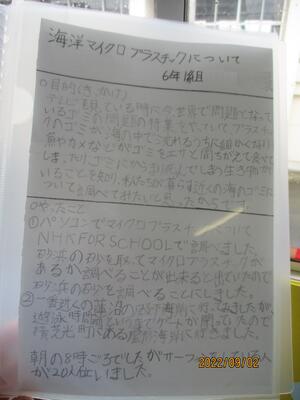 海洋マイクロプラスチックについて
6年1組
○目的(きっかけ)
テレビを見ている時に今、世界で問題となって
いるゴミの問題の特集をやっていてプラスチッ
クのゴミが海の中で流れるうちに細かくなり
魚やカメなどがゴミをエサと間ちがえて食べて
しまったり、ゴミにからまり死んでしまう生き物が
いることを知り、私たちが暮らす近くの海のゴミに
ついて調べてみたいと思ったからです。
○やったこと
①パソコンでマイクロプラスチックについて
NHK FOR SCHOOLで調べました。
砂浜の砂を取ってマイクロプラスチックが
あるか調べることが出来ると出ていたので
砂浜の砂を調べることにしました。
②一番近くの蓮沼の海岸に行ってみたが
遊泳時間前というまでゲートが閉っていたので
横芝光町にある屋形海岸に行きました。
朝の8時ごろでしたがサーフィンをしている人
が20人位いました。
2022/09/02